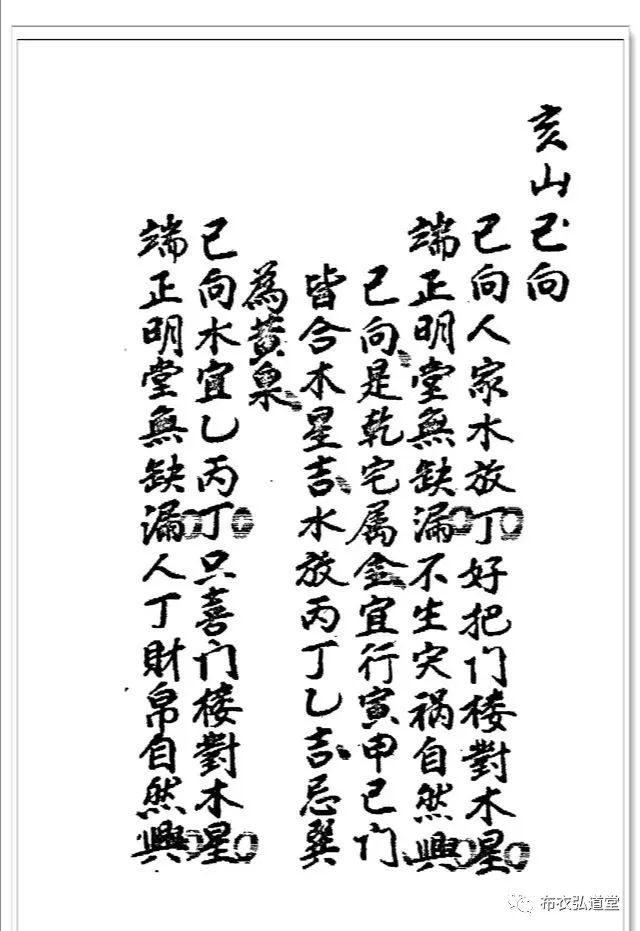 亥山巳向
巳向人家水放丁好把门楼對木星
端正明堂無缺漏不生灾祸自然興
巳向是乾宅属金宜行寅甲巳门
皆合木星吉水放丙丁乙吉忌巽
為黄泉
巳向水宜乙丙丁只喜门楼對木星
端正明堂無缺漏人丁財帛自然興
布衣弘道堂